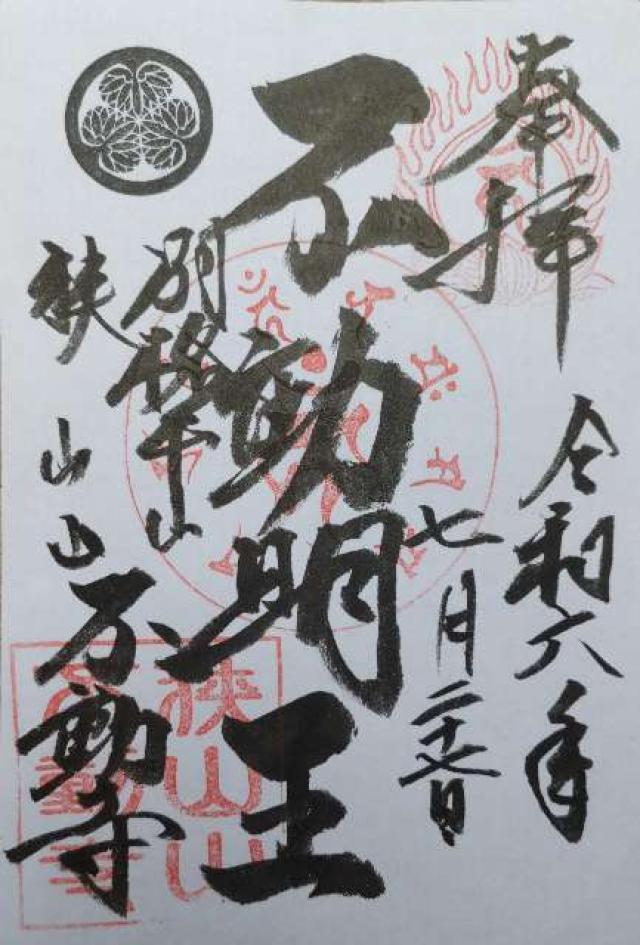 奉拝
令和六年
七月二十七日
不動明王
別格本山
狭山山不動寺
狭山山
不動寺